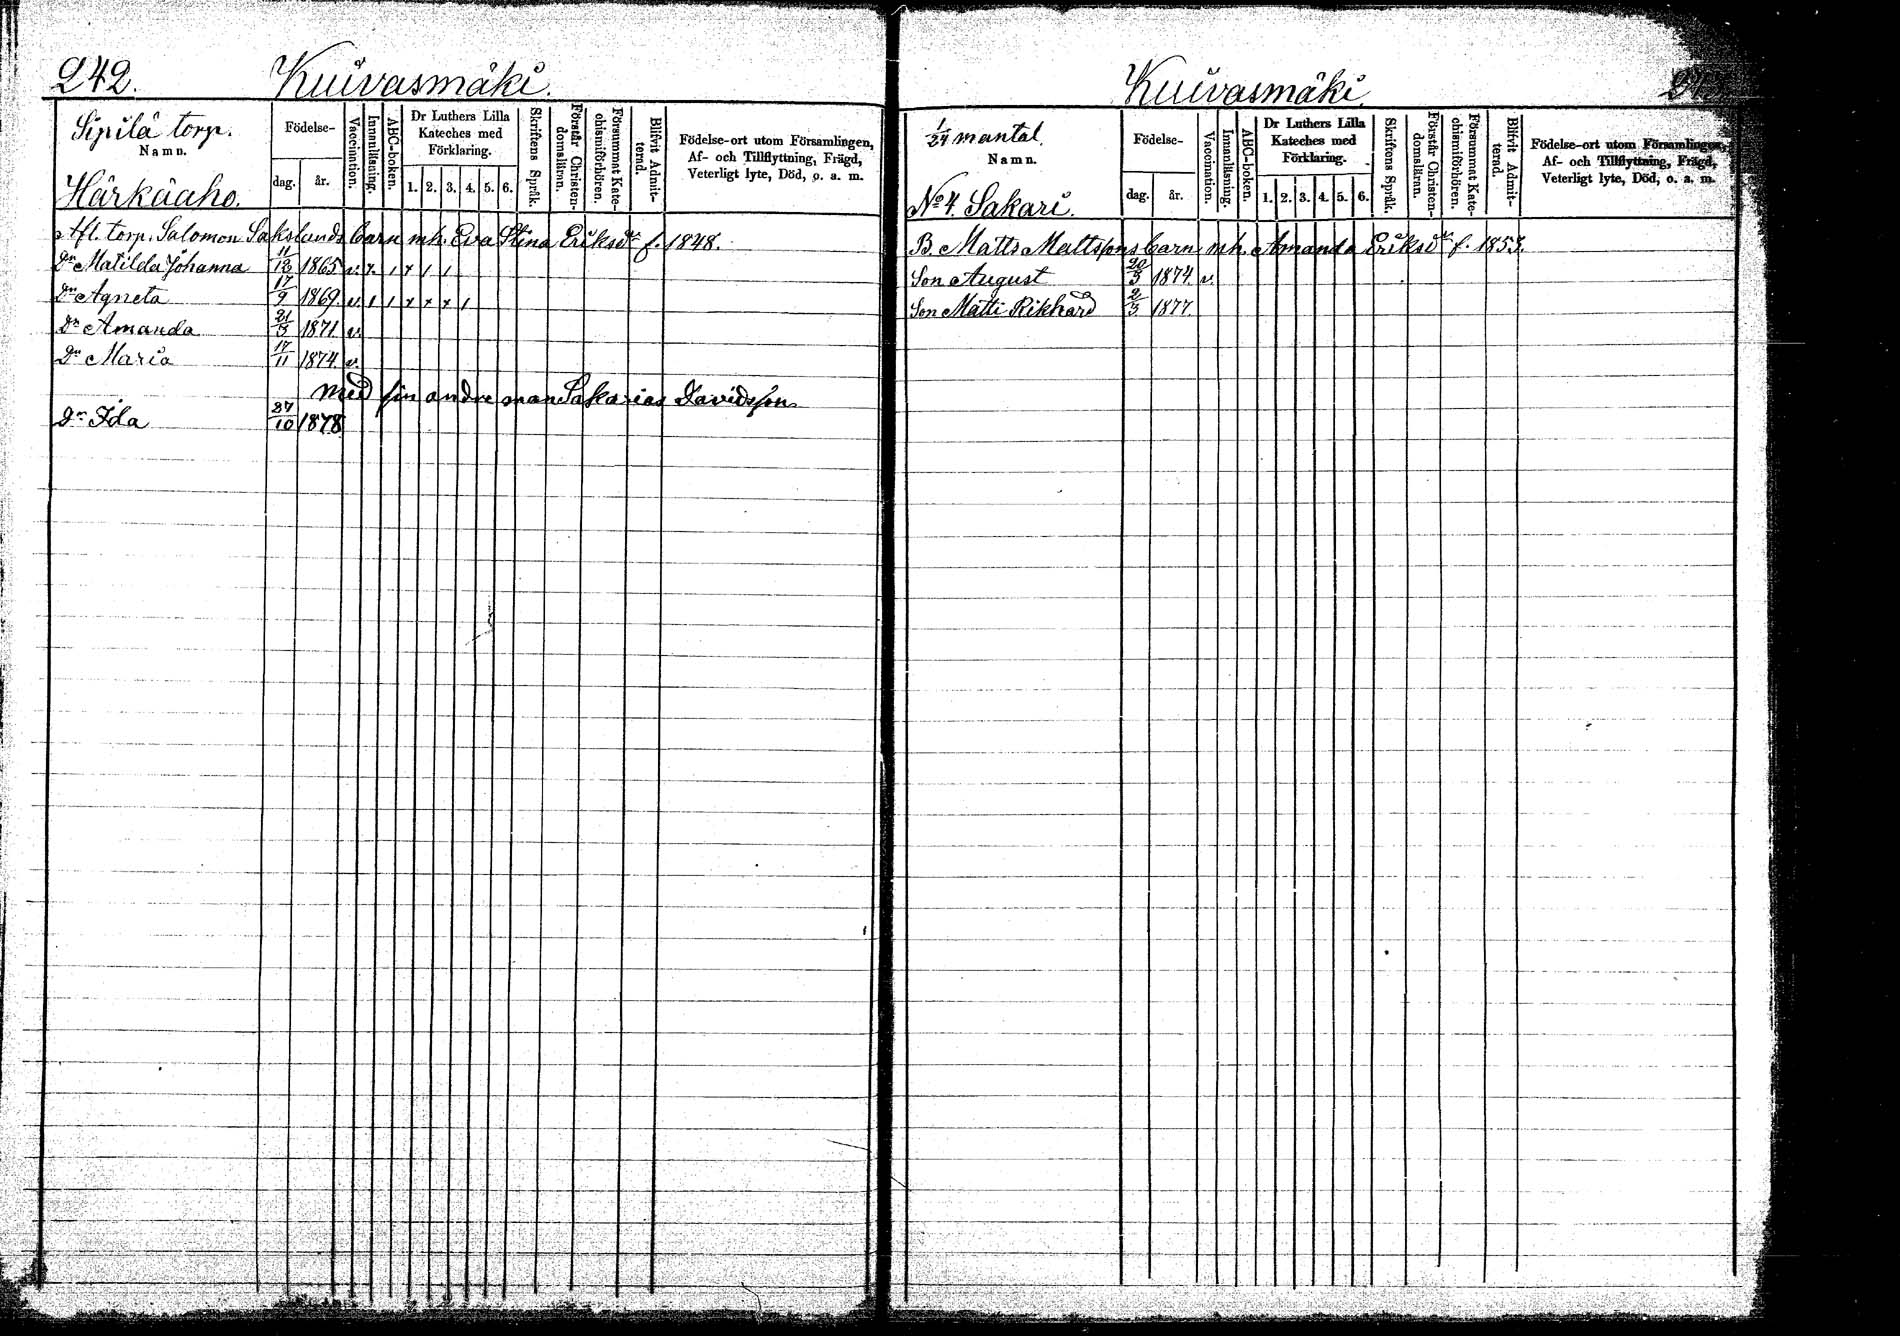 242. Kuivasmäki.
Sipilä torp.
Namn.
Härkäaho.
Födelse-
dag. år.
Vaccination.
Innanläsning.
ABC-boken.
Dr Luthers Lilla
Kateches med
Förklaring.
1. 2. 3. 4. 5. 6.
Skriftens Språk.
Förstår Christen-
domsläran.
Försummat Kate-
chismiförhören.
Blifvit Admit-
terad.
Födelse-ort utom Församlingen,
Af- och Tillflyttning, Frägd,
Veterligt lyte, Död, o. a. m.
Afl. torp. Salomon Sakslunds barn m.h. Eva Stina Eriksdr f. 1848.
Dr Matilda Johanna 11/12 1865 v. x. 1 x 1 1
Dr Agneta 17/9 1869. v. 1 1 x x x 1
Dr Amanda 21/3 1871. v.
Dr Maria 17/11 1874. v.
med sin andre man Sakarias Davidsson
Dr Ida 27/10 1878
Kuivasmäki. 243.
1/24 mantal.
Namn.
No 4. Sakari.
Födelse-
dag. år.
Vaccination.
Innanläsning.
ABC-boken.
Dr Luthers Lilla
Kateches med
Förklaring.
1. 2. 3. 4. 5. 6.
Skriftens Språk.
Förstår Christen-
domsläran.
Försummat Kate-
chismiförhören.
Blifvit Admit-
terad.
Födelse-ort utom Församlingen,
Af- och Tillflyttning, Frägd,
Veterligt lyte, Död, o. a. m.
B. Matts Mattsons barn m.h. Amanda Eriksdr f. 1853.
Son August 20/3 1874 v.
Son Matti Rikhard 2/3 1877.